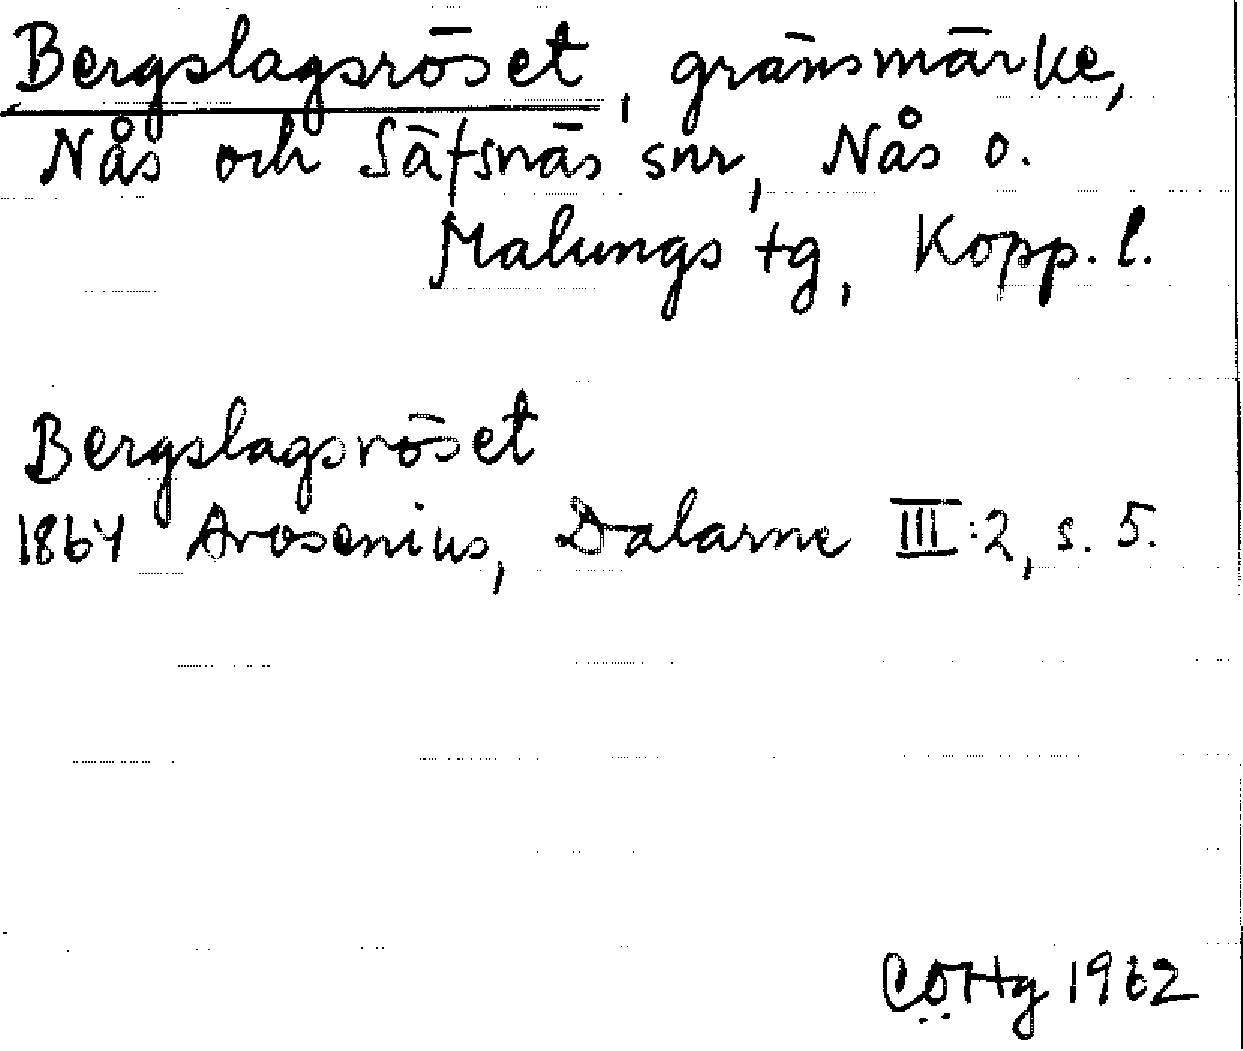 Bergslagsröset, gränsmärke,
Nås och Säfsnäs snr, Nås o.
Malungs tg, Kopp. l.
Bergslagsröset
1864 Arosenius, Dalarne III:2, s. 5.
1962